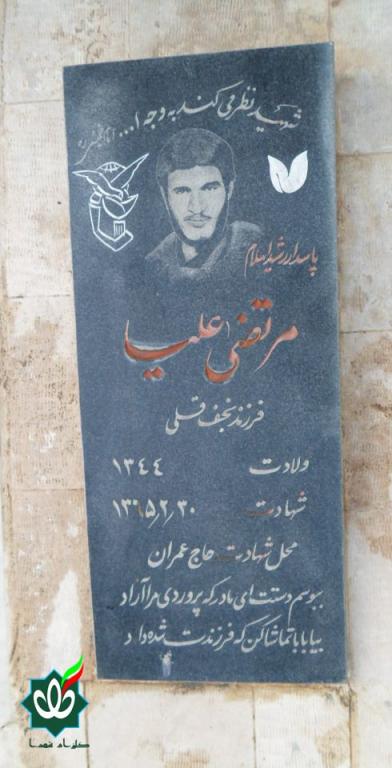 شهید نظر می کند به وجه ا... امام خمینی ره
پاسدار رشید اسلام
مرتضی علیا
فرزند نجف قلی
ولادت ۱۳۴۴
شهادت ۱۳۶۵٫۲٫۳۰
محل شهادت حاج عمران
ببوسم دستت ای مادر که پروردی مرا آزاد
بیا بابا تماشا کن که فرزندت شده داد